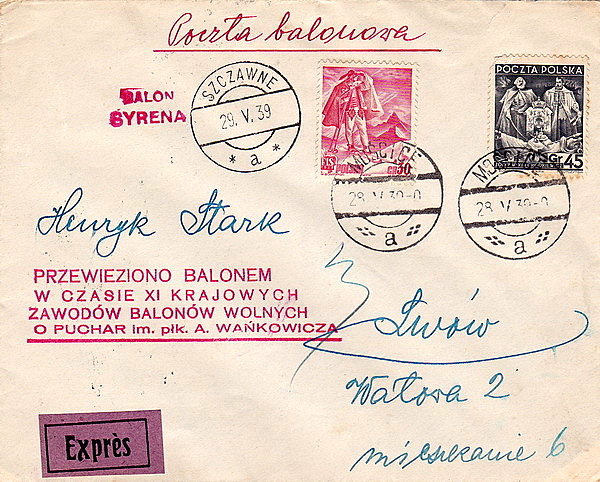 Poczta balonowa
BALON
SYRENA
SZCZAWNE
29. V. 39
* a *
POCZTA POLSKA
GR 30
Gr 45
MOŚCICE
28 V 39
a
28 V 39
a
Henryk Stark
PRZEWIEZIONO BALONEM
W CZASIE XI KRAJOWYCH
ZAWODÓW BALONÓW WOLNYCH
O PUCHAR im. płk. A. WAŃKOWICZA
Lwów
Wałowa 2
mieszkanie 6
Exprès